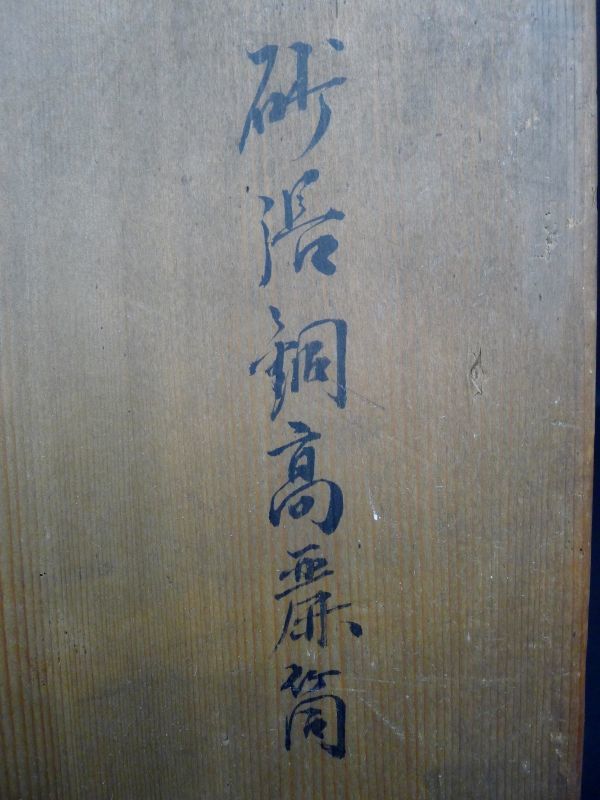 砂張銅高麗筒